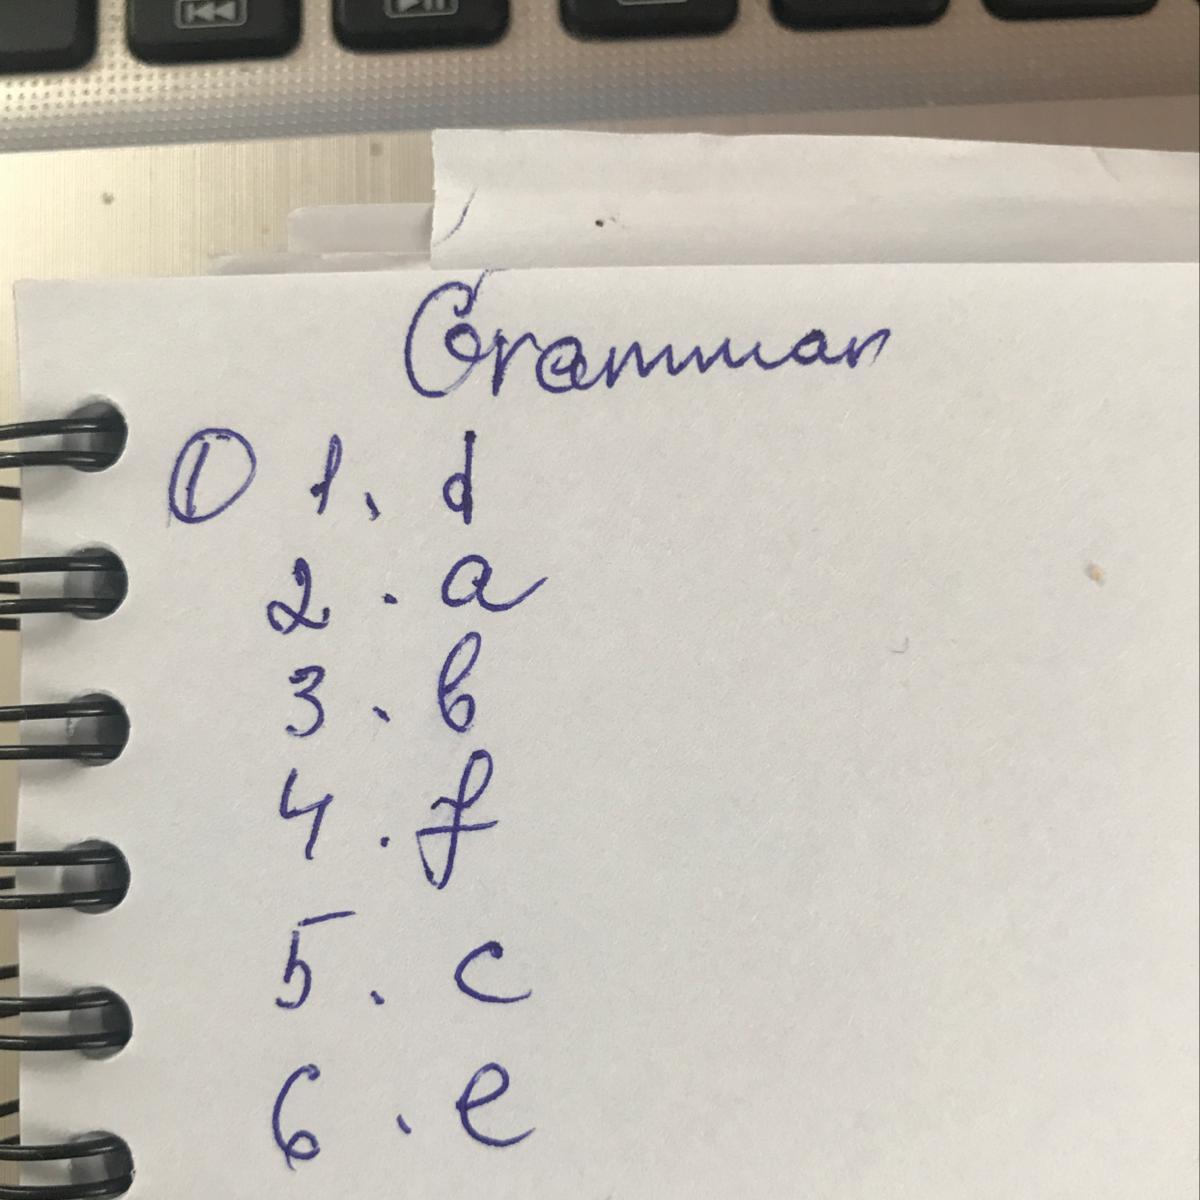 Grammar
① 1. d
2. a
3. b
4. f
5. c
6. e